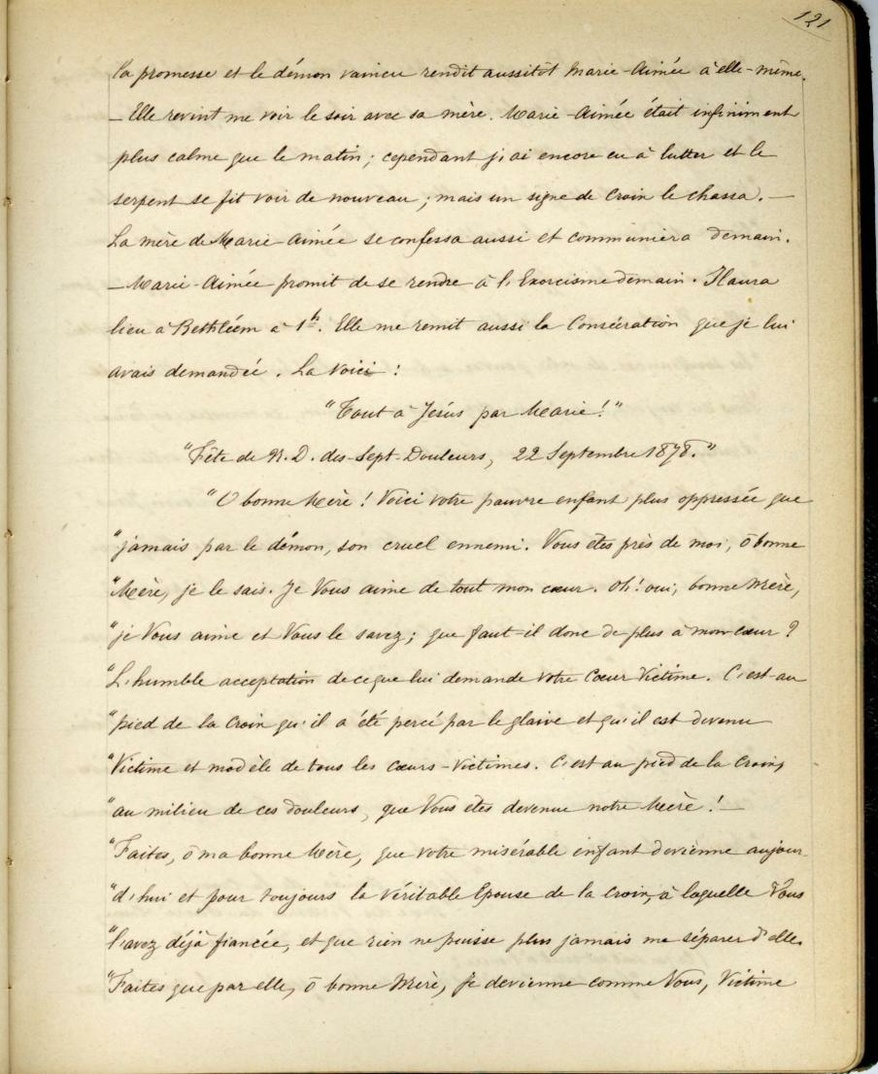 121
la promesse et le démon vaincu rendit aussitôt Marie-Aimée à elle-même.
— Elle revint me voir le soir avec sa mère. Marie-Aimée était infiniment
plus calme que le matin ; cependant j'ai encore eu à lutter et le
serpent se fit voir de nouveau ; mais un signe de Croix le chassa. —
La mère de Marie-Aimée se confessa aussi et communiera demain.
— Marie-Aimée promit de se rendre à l'Exorcisme demain. Il aura
lieu à Bethléem à 1h. Elle me remit aussi la Consécration que je lui
avais demandée. La voici :
"Tout à Jésus par Marie !"
"Fête de N. D. des Sept-Douleurs, 22 Septembre 1878."
"O bonne Mère ! Voici votre pauvre enfant plus oppressée que
"jamais par le démon, son cruel ennemi. Vous êtes près de moi, ô bonne
"Mère, je le sais. Je Vous aime de tout mon cœur. Oh ! oui, bonne Mère,
"je Vous aime et Vous le savez ; que faut-il donc de plus à mon cœur ?
"L'humble acceptation de ce que lui demande votre Cœur Victime. C'est au
"pied de la Croix qu'il a été percé par le glaive et qu'il est devenu
"Victime et modèle de tous les cœurs-victimes. C'est au pied de la Croix,
"au milieu de ces douleurs, que Vous êtes devenue notre Mère ! —
"Faites, ô ma bonne Mère, que votre misérable enfant devienne aujour-
"d'hui et pour toujours la véritable Epouse de la Croix, à laquelle Vous
"l'avez déjà fiancée, et que rien ne puisse plus jamais me séparer d'elle.
"Faites que par elle, ô bonne Mère, je devienne comme Vous, Victime